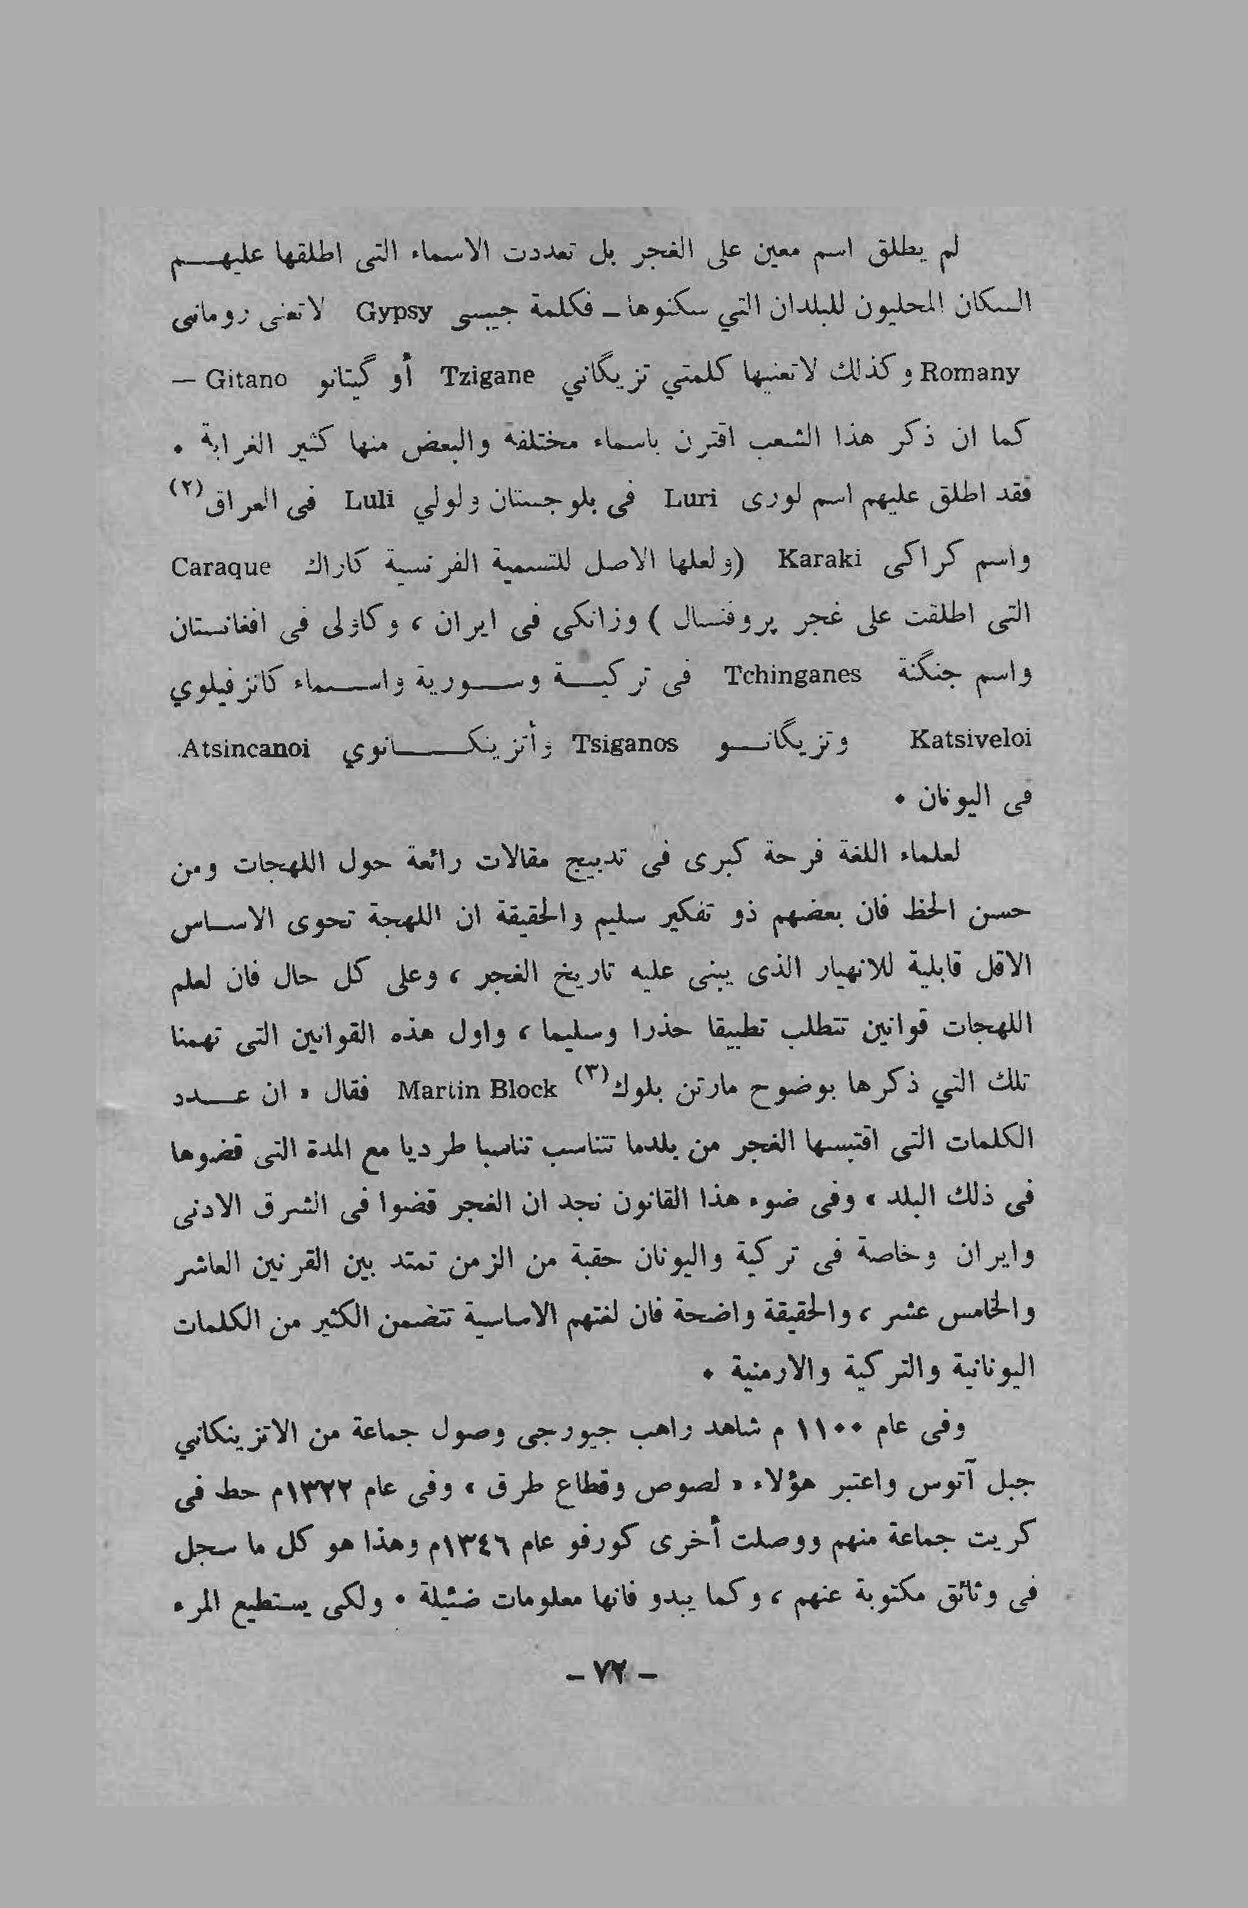 لم يطلق اسم معين على الغجر بل تعددت الاسماء التى اطلقها عليهم
السكان المحليون للبلدان التي سكنوها ـ فكلمة جيبسى Gypsy لاتعنى رومانى
Romany وكذلك لاتعنيها كلمتي تزيگاني Tzigane أو گيتانو Gitano —
كما ان ذكر هذا الشعب اقترن باسماء مختلفة والبعض منها كثير الغرابة ٠
فقد اطلق عليهم اسم لورى Luri فى بلوجستان ولولي Luli فى العراق(٢)
واسم كراكى Karaki (ولعلها الاصل للتسمية الفرنسية كاراك Caraque
التى اطلقت على غجر پروفنسال ) وزانكى فى ايران ، وكاژلى فى افغانستان
واسم جنگنة Tchinganes فى تركيـة وسـورية واسـماء كانزفيلوي
Katsiveloi وتزيگانـو Tsiganos وأتزينكـانوي Atsincanoi.
فى اليونان ٠
لعلماء اللغة فرحة كبرى فى تدبيج مقالات رائعة حول اللهجات ومن
حسن الحظ فان بعضهم ذو تفكير سليم والحقيقة ان اللهجة تحوى الاساس
الاقل قابلية للانهيار الذى يبنى عليه تاريخ الغجر ، وعلى كل حال فان لعلم
اللهجات قوانين تتطلب تطبيقا حذرا وسليما ، واول هذه القوانين التى تهمنا
تلك التي ذكرها بوضوح مارتن بلوك(٣) Martin Block فقال « ان عـدد
الكلمات التى اقتبسها الغجر من بلدما تتناسب تناسبا طرديا مع المدة التى قضوها
فى ذلك البلد » وفى ضوء هذا القانون نجد ان الغجر قضوا فى الشرق الادنى
وايران وخاصة فى تركية واليونان حقبة من الزمن تمتد بين القرنين العاشر
والخامس عشر ، والحقيقة واضحة فان لغتهم الاساسية تتضمن الكثير من الكلمات
اليونانية والتركية والارمنية ٠
وفى عام ١١٠٠ م شاهد راهب جيورجى وصول جماعة من الاتزينكاني
جبل آتوس واعتبر هؤلاء « لصوص وقطاع طرق » وفى عام ١٣٢٢م حط فى
كريت جماعة منهم ووصلت أخرى كورفو عام ١٣٤٦م وهذا هو كل ما سجل
فى وثائق مكتوبة عنهم ، وكما يبدو فانها معلومات ضئيلة ٠ ولكى يستطيع المرء
– ٧٢ –